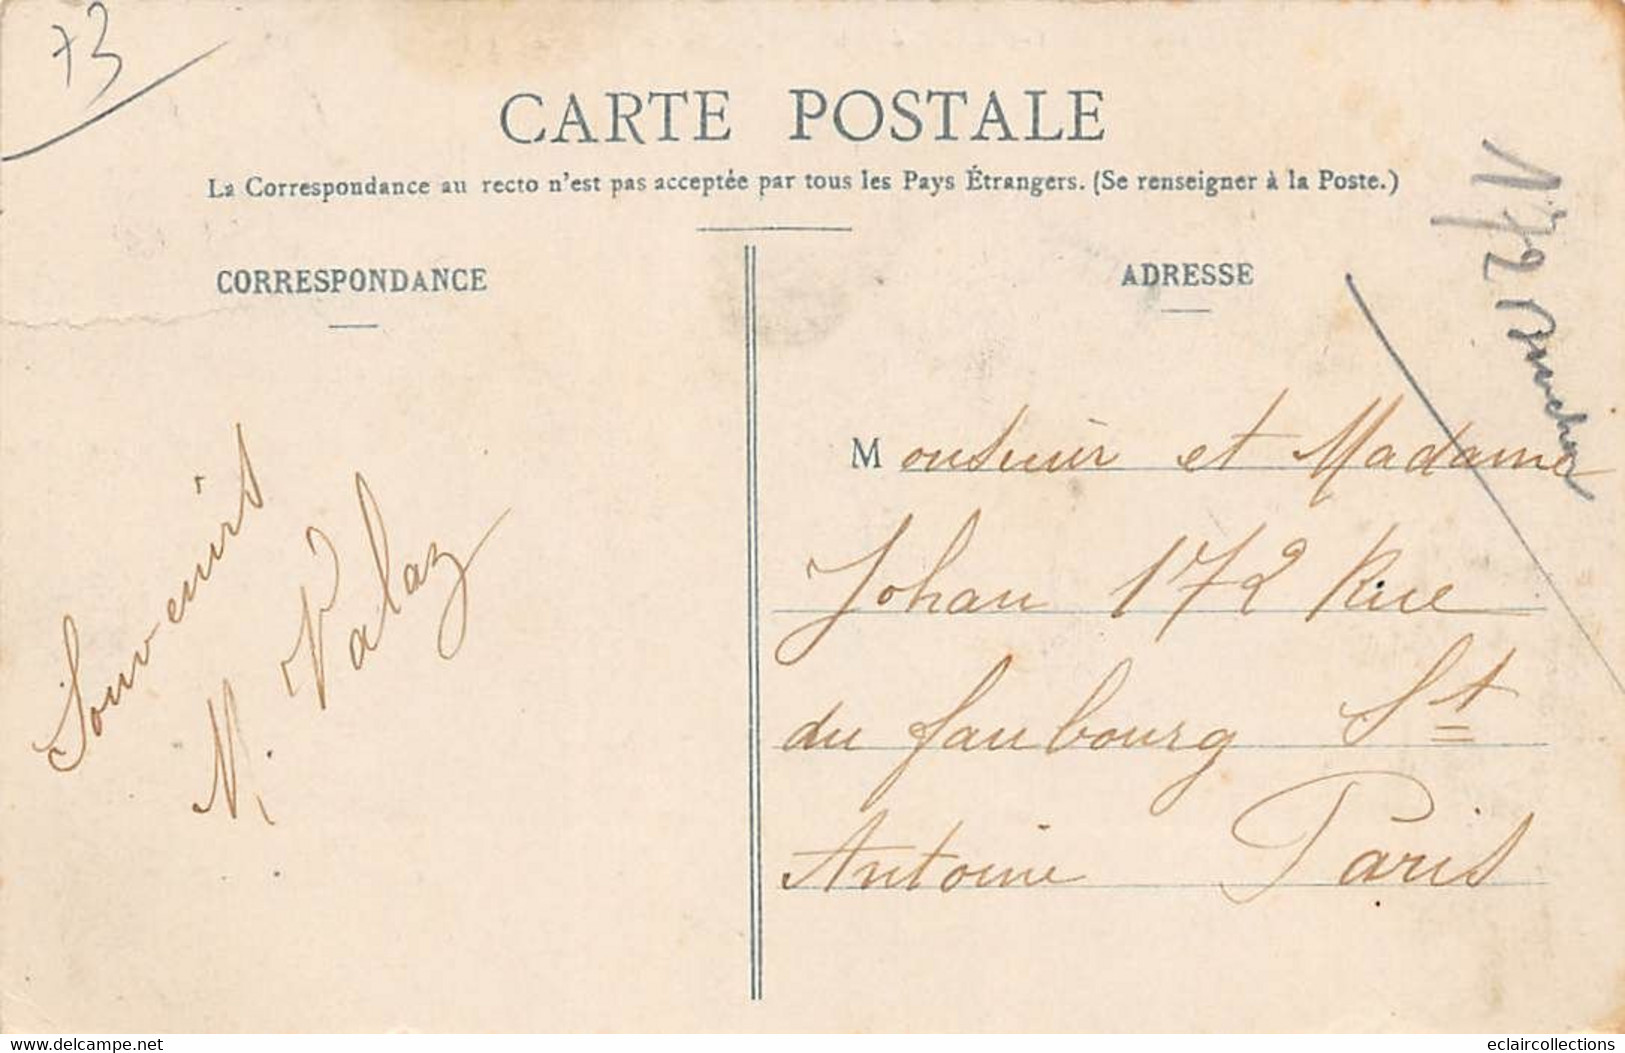 73
CARTE POSTALE
La Correspondance au recto n'est pas acceptée par tous les Pays Étrangers. (Se renseigner à la Poste.)
CORRESPONDANCE
ADRESSE
Souvenirs
M. Valaz
Monsieur et Madame
Johan 172 Rue
du faubourg St
Antoine Paris
172
www.delcampe.net
eclaircollections